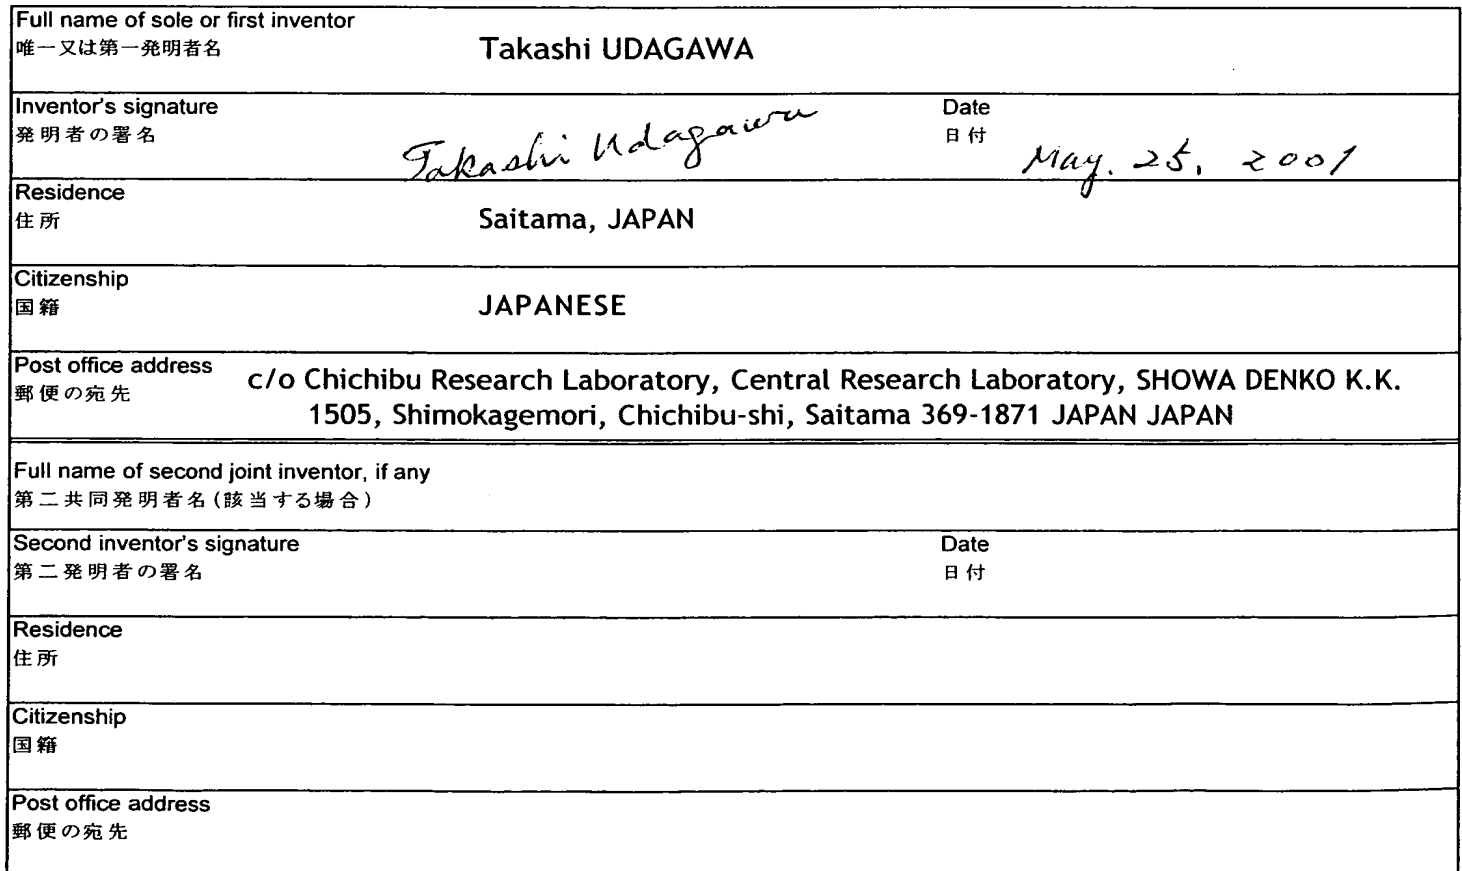 Full name of sole or first inventor
唯一又は第一発明者名
Takashi UDAGAWA
Inventor's signature
発明者の署名
Takashi Udagawa
Date
日付
May. 25, 2001
Residence
住所
Saitama, JAPAN
Citizenship
国籍
JAPANESE
Post office address
郵便の宛先
c/o Chichibu Research Laboratory, Central Research Laboratory, SHOWA DENKO K.K.
1505, Shimokagemori, Chichibu-shi, Saitama 369-1871 JAPAN JAPAN
Full name of second joint inventor, if any
第二共同発明者名(該当する場合)
Second inventor's signature
第二発明者の署名
Date
日付
Residence
住所
Citizenship
国籍
Post office address
郵便の宛先